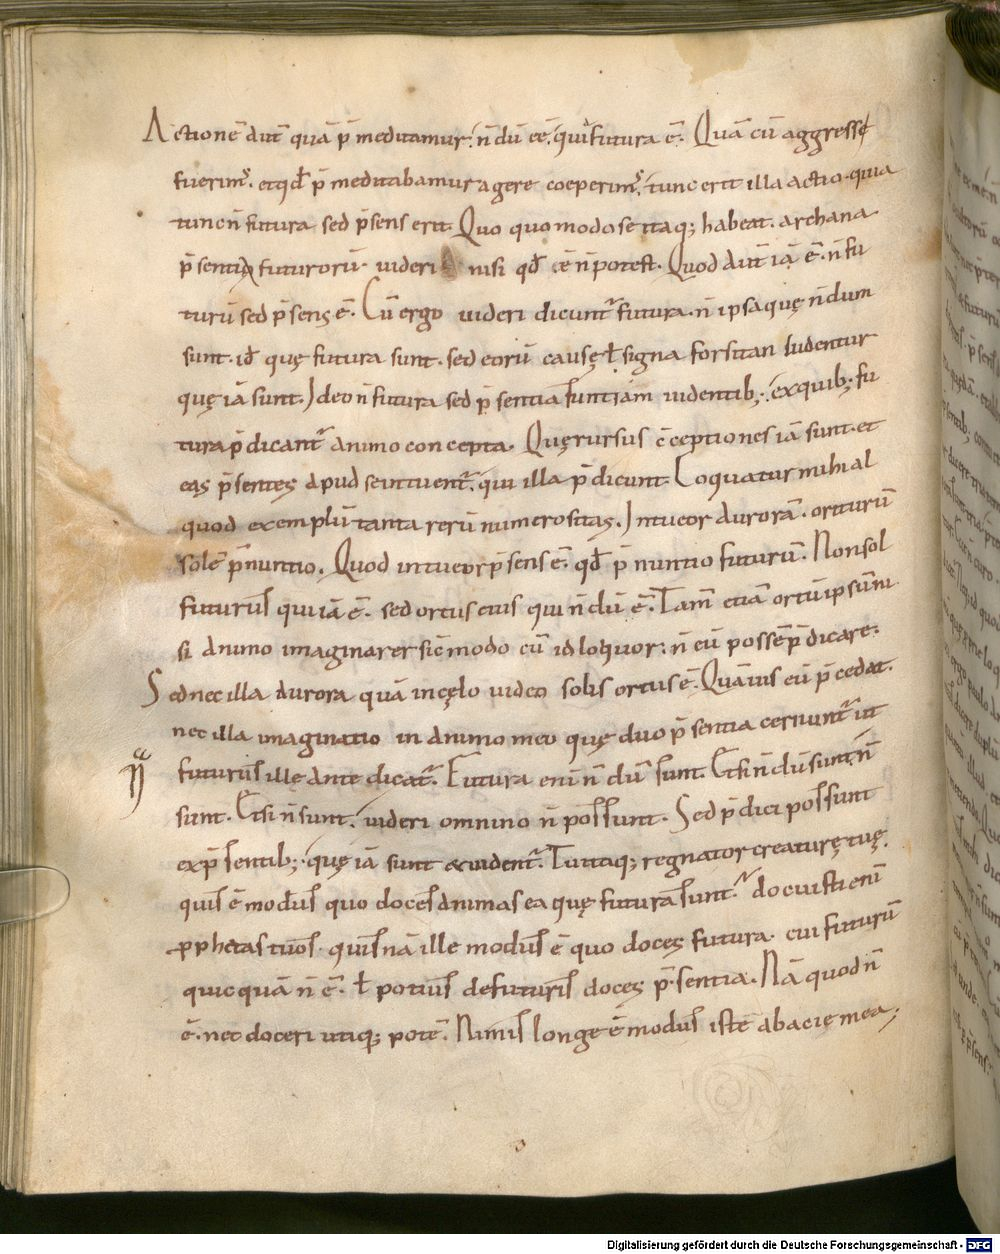 Actionē aut̄ quā p̄meditamur. n̄ dū eē. quia futura ē. Quā cū aggressę
fuerim᷒. et qd̄ p̄meditabamur agere coeperim᷒. tunc erit illa actio. quia
tunc n̄ futura sed p̄sens erit. Quo quo modo se itaq; habeat. archana
p̄sensio futurorū. videri nisi qd̄ ē n̄ potest. Quod aut̄ iā ē. n̄ fu
turū sed p̄sens ē. Cū ergo videri dicunt᷑ futura. n̄ ipsa quę n̄dum
sunt. id̄ quę futura sunt. sed eorū causę ł signa forsitan videntur
quę iā sunt. Ideo n̄ futura sed p̄sentia sunt iam videntib;. ex quib; fu
tura p̄dicant᷑ animo concepta. Quę rursus c̄ceptiones iā sunt. et
eas p̄sentes apud se intuent᷑. qui illa p̄dicunt. Loquatur mihi al
quod exemplū tanta rerū numerositas. Intueor aurorā. oriturū
solē p̄nuntio. Quod intueor p̄sens ē. qd̄ p̄nuntio futurū. Non sol
futurus qui iā ē. sed ortus eius qui n̄dū ē. Tam̄ etiā ortū ipsum ni
si animo imaginarer sic̄ modo cū id loquor. n̄ eū possē p̄dicare.
Sed nec illa aurora quā in cęlo video solis ortus ē. Quāvis eū p̄cedat.
nec illa imaginatio in animo meo quę duo p̄sentia cernunt᷑ ut
futurus ille ante dicat᷑. Futura eni n̄dū sunt. Et si n̄dū sunt n̄
sunt. Et si n̄ sunt. videri omnino n̄ possunt. Sed p̄dici possunt
ex p̄sentib;. quę iā sunt & vident᷑. Tu itaq; regnator creaturę tuę.
quis ē modus quo doces animas ea quę futura sunt. docuisti enī
pphetas tuos. quis nā ille modus ē quo doces futura. cui futurū
quicquā n̄ ē. ł potius de futuris doces p̄sentia. Nā quod n̄
ē. nec doceri utiq; potē. Nimis longe ē modus iste ab acie mea;